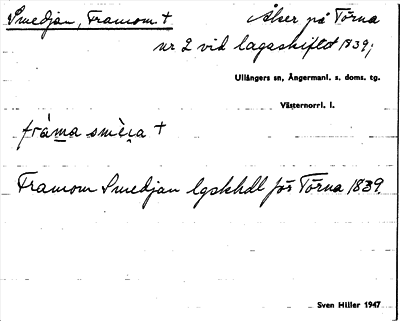 Smedjan, Framom + Åker på Törna
nr 2 vid lagaskiftet 1839;
Ullångers sn, Ångermanl. s. doms. tg.
Västernorrl. l.
fráma smèɩa +
Framom Smedjan lgskhdl för Törna 1839.
Sven Hiller 1947